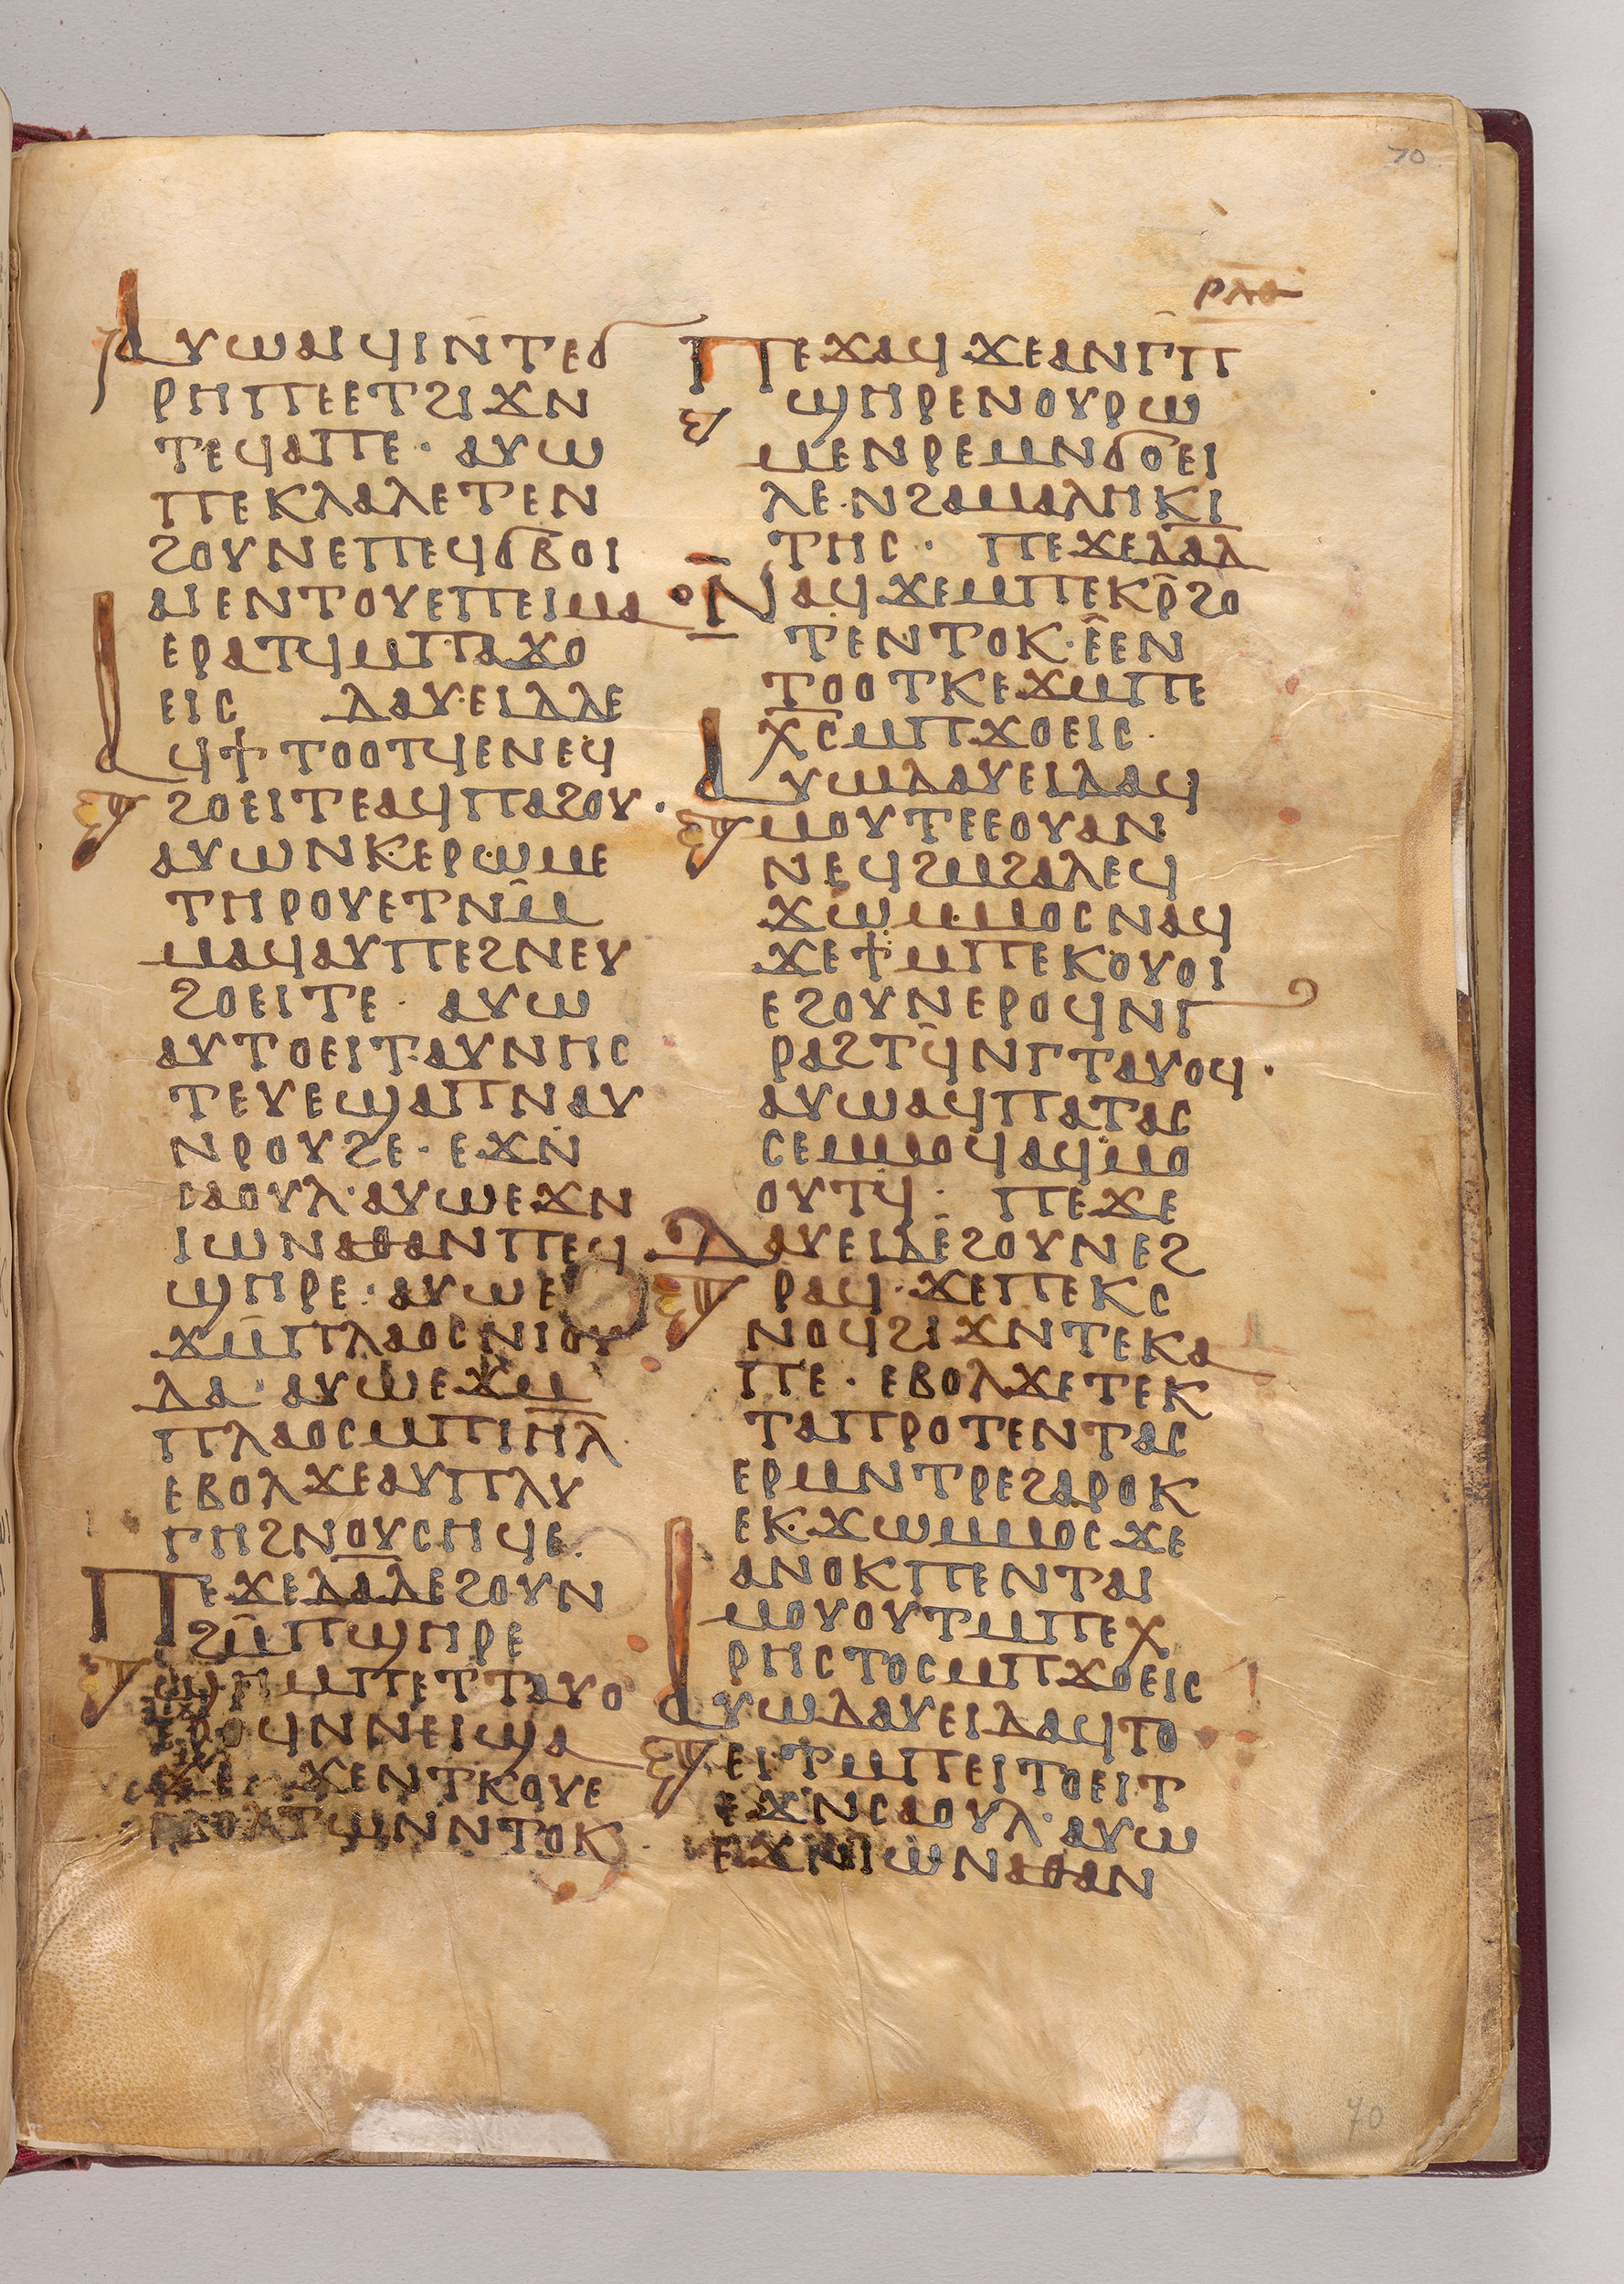 70
ⲣⲗⲑ
ⲁⲩⲱⲁⲓϥⲓⲛ̄ⲧⲉϭ
ⲣⲏⲡⲉⲉⲧϩⲓϫⲛ
ⲧⲉϥⲁⲡⲉ· ⲁⲩⲱ
ⲡⲉⲕⲗⲁⲗⲉⲧⲉⲛ
ϩⲟⲩⲛⲉⲡⲉϥϭⲃⲟⲓ
ⲁⲓⲉⲛⲧⲟⲩⲉⲡⲉⲓⲙⲁ
ⲉⲣⲁⲧϥⲙⲡⲁϫⲟ
ⲉⲓⲥ ⲇⲁⲩⲉⲓⲇⲇⲉ
ⲁϥϯⲧⲟⲟⲧϥⲉⲛⲉϥ
ϩⲟⲉⲓⲧⲉⲁϥⲡⲁϩⲟⲩ·
ⲁⲩⲱⲛⲕⲉⲣⲱⲙⲉ
ⲧⲏⲣⲟⲩⲉⲧⲛⲙ̄
ⲙⲁϥⲁⲩⲡⲉϩⲛⲉⲩ
ϩⲟⲉⲓⲧⲉ· ⲁⲩⲱ
ⲁⲩⲧⲟⲉⲓⲧ·ⲁⲩⲛⲏⲥ
ⲧⲉⲩⲉϣⲁⲡⲛⲁⲩ
ⲛⲣⲟⲩϩⲉ· ⲉϫⲛ
ⲥⲁⲟⲩⲗ·ⲁⲩⲱⲉϫⲛ
ⲓⲱⲛⲁⲑⲁⲛⲡⲉϥ
ϣⲏⲣⲉ· ⲁⲩⲱⲉ
ϫⲙ̄ⲡⲗⲁⲟⲥⲛⲓⲟⲩ
ⲇⲁ·ⲁⲩⲱⲉϫⲙ
ⲡⲗⲁⲟⲥⲙⲡⲓⲏ̄ⲗ̄
ⲉⲃⲟⲗϫⲉⲁⲩⲡⲗⲩ
ⲅⲏϩⲛⲟⲩⲥⲏϥⲉ·
ⲡⲉϫⲉⲇⲁ̄ⲇⲉϩⲟⲩⲛ
ϩⲙ̄ⲡϣⲏⲣⲉ
ϣⲏⲙⲡⲉⲧⲧⲁⲩⲟ
ⲉⲣⲟϥⲛⲛⲉⲓϣⲁ
ϫⲉ· ϫⲉⲛⲧⲕⲟⲩⲉ
ⲉⲃⲟⲗⲧⲱⲛⲛⲧⲟⲕ·
ⲡⲉϫⲁϥϫⲉⲁⲛⲅⲡ
ϣⲏⲣⲉⲛⲟⲩⲣⲱ
ⲙⲉⲛⲣⲉⲙⲛϭⲟⲉⲓ
ⲗⲉ·ⲛϩⲁⲙⲁⲗⲏⲕⲓ
ⲧⲏⲥ· ⲡⲉϫⲉⲇⲁ̄ⲇ̄
ⲛⲁϥϫⲉⲙⲡⲉⲕⲣ̄ϩⲟ
ⲧⲉⲛⲧⲟⲕ·ⲉ̂ⲉⲛ
ⲧⲟⲟⲧⲕⲉϫⲙⲡⲉ
ⲭ̄ⲥ̄ⲙⲡϫⲟⲉⲓⲥ·
ⲁⲩⲱⲇⲁⲩⲉⲓⲇⲁϥ
ⲙⲟⲩⲧⲉⲉⲟⲩⲁⲛ
ⲛⲉϥϩⲙϩⲁⲗⲉϥ
ϫⲱⲙⲙⲟⲥⲛⲁϥ
ϫⲉϯⲙⲡⲉⲕⲟⲩⲟⲓ
ⲉϩⲟⲩⲛⲉⲣⲟϥⲛⲅ
ⲣⲁϩⲧϥ̄ⲛⲅⲧⲁⲩⲟϥ·
ⲁⲩⲱⲁϥⲡⲁⲧⲁⲥ
ⲥⲉⲙⲙⲟϥⲁϥⲙⲟ
ⲟⲩⲧϥ· ⲡⲉϫⲉ
ⲇⲁⲩⲉⲓⲇⲉ̄ϩⲟⲩⲛⲉϩ
ⲣⲁϥ·ϫⲉⲡⲉⲕⲥ
ⲛⲟϥϩⲓϫⲛⲧⲉⲕⲁ
ⲡⲉ· ⲉⲃⲟⲗϫⲉⲧⲉⲕ
ⲧⲁⲡⲣⲟⲧⲉⲛⲧⲁⲥ
ⲉⲣⲙⲛⲧⲣⲉϩⲁⲣⲟⲕ
ⲉⲕϫⲱⲙⲙⲟⲥϫⲉ
ⲁⲛⲟⲕⲡⲉⲛⲧⲁⲓ
ⲙⲟⲩⲟⲩⲧⲙⲡⲉⲭ
ⲣⲏⲥⲧⲟⲥⲙⲡϫⲟⲉⲓⲥ
ⲁⲩⲱⲇⲁⲩⲉⲓⲇⲁϥⲧⲟ
ⲉⲓⲧⲙⲡⲉⲓⲧⲟⲉⲓⲧ
ⲉϫⲛⲥⲁⲟⲩⲗ·ⲁⲩⲱ
ⲉϫⲛⲓⲱⲛⲁⲑⲁⲛ
70